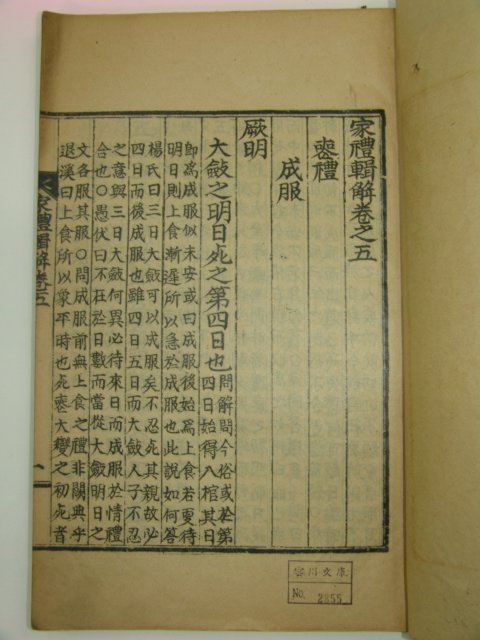 家禮輯解卷之五
喪禮
成服
厥明
大斂之明日死之第四日也
問解問今俗或於第
四日始得入棺其日
即爲成服似未安或曰成服後始爲上食若更待
明日則上食漸遲所以急於成服也此說如何答
楊氏曰三日大斂可以成服矣不忍死其親故必
四日而後成服也雖四日五日而大斂人子不忍
之意與三日大斂何異必待來日而成服於情禮
合也○愚伏曰不在於日數而當從大斂明日之
文各服其服○問成服前無上食之禮非闕典乎
退溪曰上食所以象平時也死喪大變之初死者
家禮輯解卷五
一
文庫
No. 2855